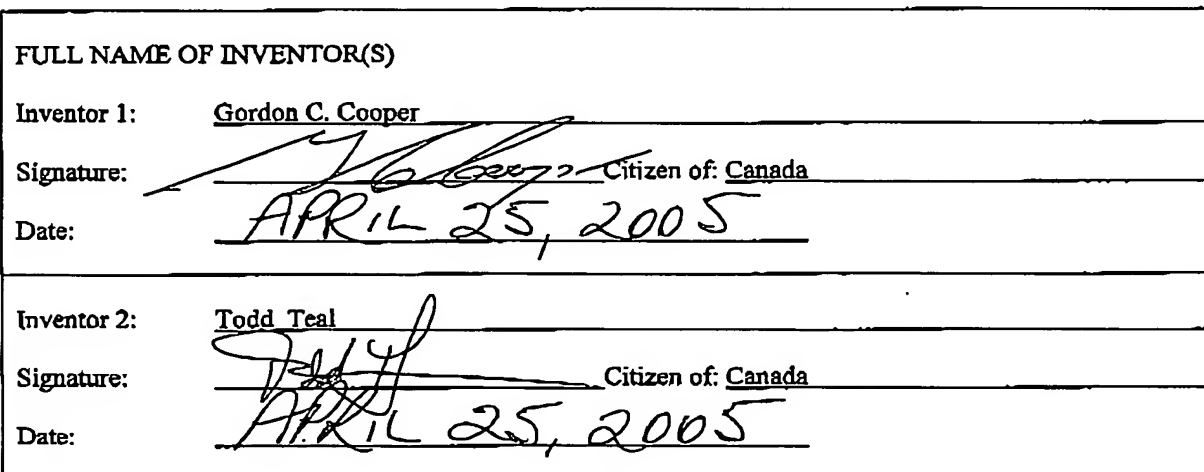 FULL NAME OF INVENTOR(S)
Inventor 1: Gordon C. Cooper
Signature: Citizen of: Canada
Date: APRIL 25, 2005
Inventor 2: Todd Teal
Signature: Citizen of: Canada
Date: APRIL 25, 2005